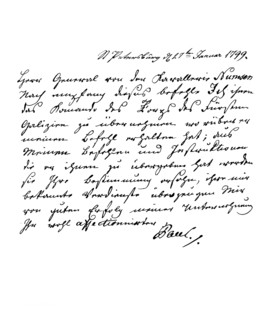 St Petersburg d. 1ten Januar 1799.
Herr General von der Kavallerie Numsen
Nach Empfang dieses befehle Ich ihnen
das Komando des Korps des Fürsten
Galizin zu übernehmen worüber er
meinen Befehl erhalten hat; aus
Meinen Befehlen und Instruktionen
die er ihnen zu übergeben hat werden
sie Ihre Bestimmung ersehn, ihre mir
bekante Verdienste überzeugen Mir
von guten Erfolg meiner Unternehmung
Ihr wohl affectionnirter
Paul.